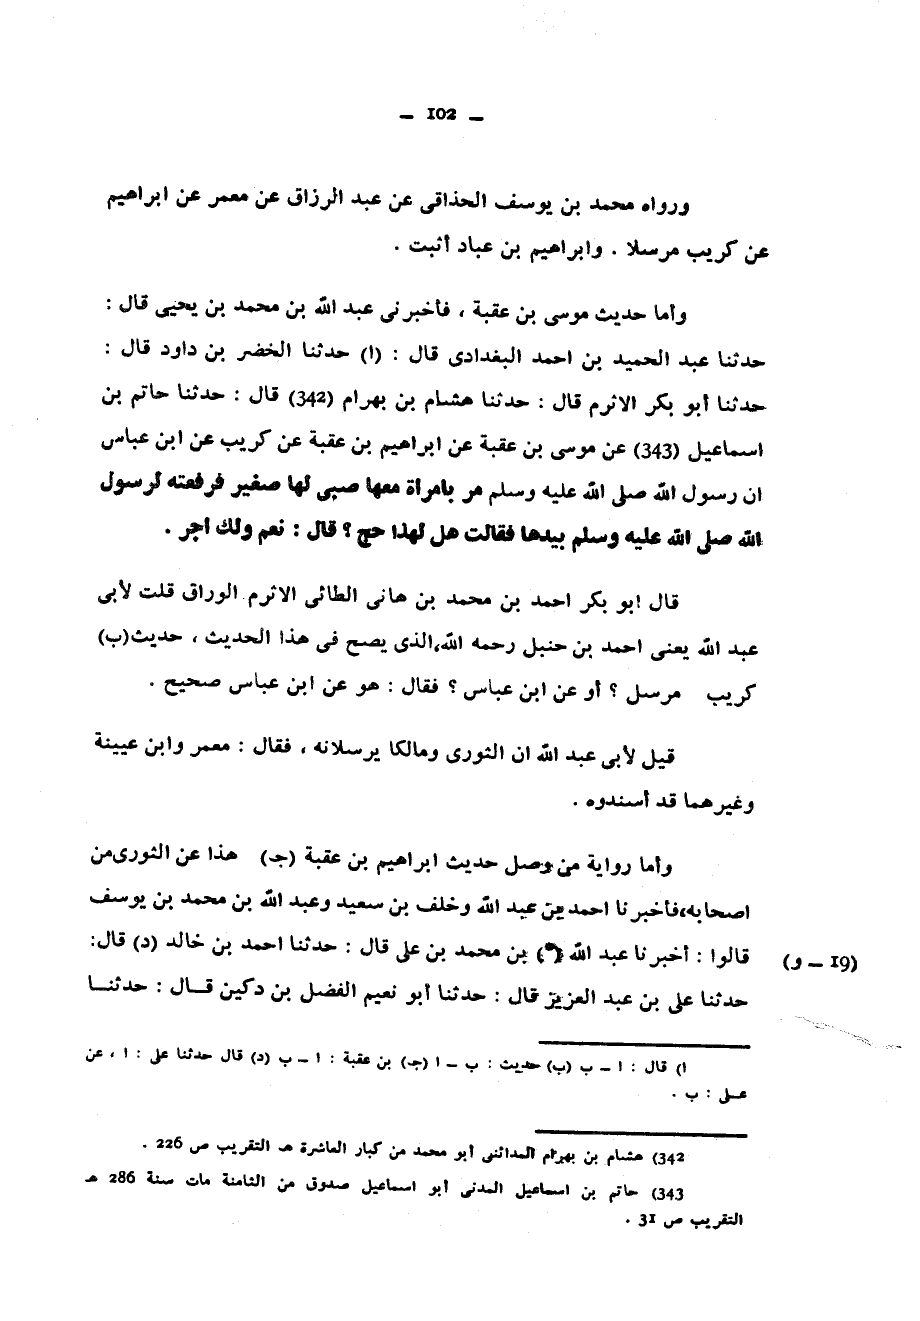 — 102 —
ورواه محمد بن يوسف الحذاقى عن عبد الرزاق عن معمر عن ابراهيم
عن كريب مرسلا . وابراهيم بن عباد أثبت .
وأما حديث موسى بن عقبة ، فأخبرنى عبد الله بن محمد بن يحيى قال :
حدثنا عبد الحميد بن احمد البغدادى قال : (ا) حدثنا الخضر بن داود قال :
حدثنا أبو بكر الاثرم قال : حدثنا هشام بن بهرام (342) قال : حدثنا حاتم بن
اسماعيل (343) عن موسى بن عقبة عن ابراهيم بن عقبة عن كريب عن ابن عباس
ان رسول الله صلى الله عليه وسلم مر بامرأة معها صبى لها صغير فرفعته لرسول
الله صلى الله عليه وسلم بيدها فقالت هل لهذا حج ؟ قال : نعم ولك اجر .
قال ابو بكر احمد بن محمد بن هانى الطائى الاثرم الوراق قلت لأبى
عبد الله يعنى احمد بن حنبل رحمه الله،الذى يصح فى هذا الحديث ، حديث(ب)
كريب مرسل ؟ أو عن ابن عباس ؟ فقال : هو عن ابن عباس صحيح .
قيل لأبى عبد الله ان الثورى ومالكا يرسلانه ، فقال : معمر وابن عيينة
وغيرهما قد أسندوه .
وأما رواية من وصل حديث ابراهيم بن عقبة (جـ) هذا عن الثورى من
اصحابه،فأخبرنا احمد بن عبد الله وخلف بن سعيد وعبد الله بن محمد بن يوسف
قالوا : أخبرنا عبد الله (*) بن محمد بن على قال : حدثنا احمد بن خالد (د) قال:
(19 — و)
حدثنا على بن عبد العزيز قال : حدثنا أبو نعيم الفضل بن دكين قــال : حدثنــا
ا) قال : ا — ب (ب) حديث : ب — ا (جـ) بن عقبة : ا — ب (د) قال حدثنا على : ا ، عن
عـلى : ب .
342) هشام بن بهرام المدائنى أبو محمد من كبار العاشرة هـ التقريب ص 226 .
343) حاتم بن اسماعيل المدنى أبو اسماعيل صدوق من الثامنة مات سنة 286 هـ
التقريب ص 31 .